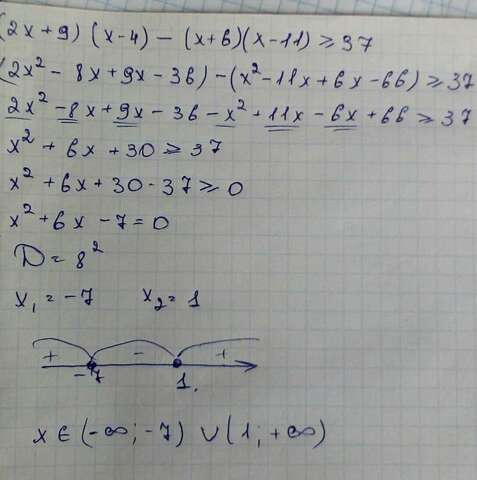 (2x+9)(x-4)-(x+6)(x-11)≥37
(2x²-8x+9x-36)-(x²-11x+6x-66)≥37
2x²-8x+9x-36-x²+11x-6x+66≥37
x²+6x+30≥37
x²+6x+30-37≥0
x²+6x-7=0
D=8²
x₁=-7 x₂=1
+ - +
-7 1.
x∈(-∞;-7)∪(1;+∞)